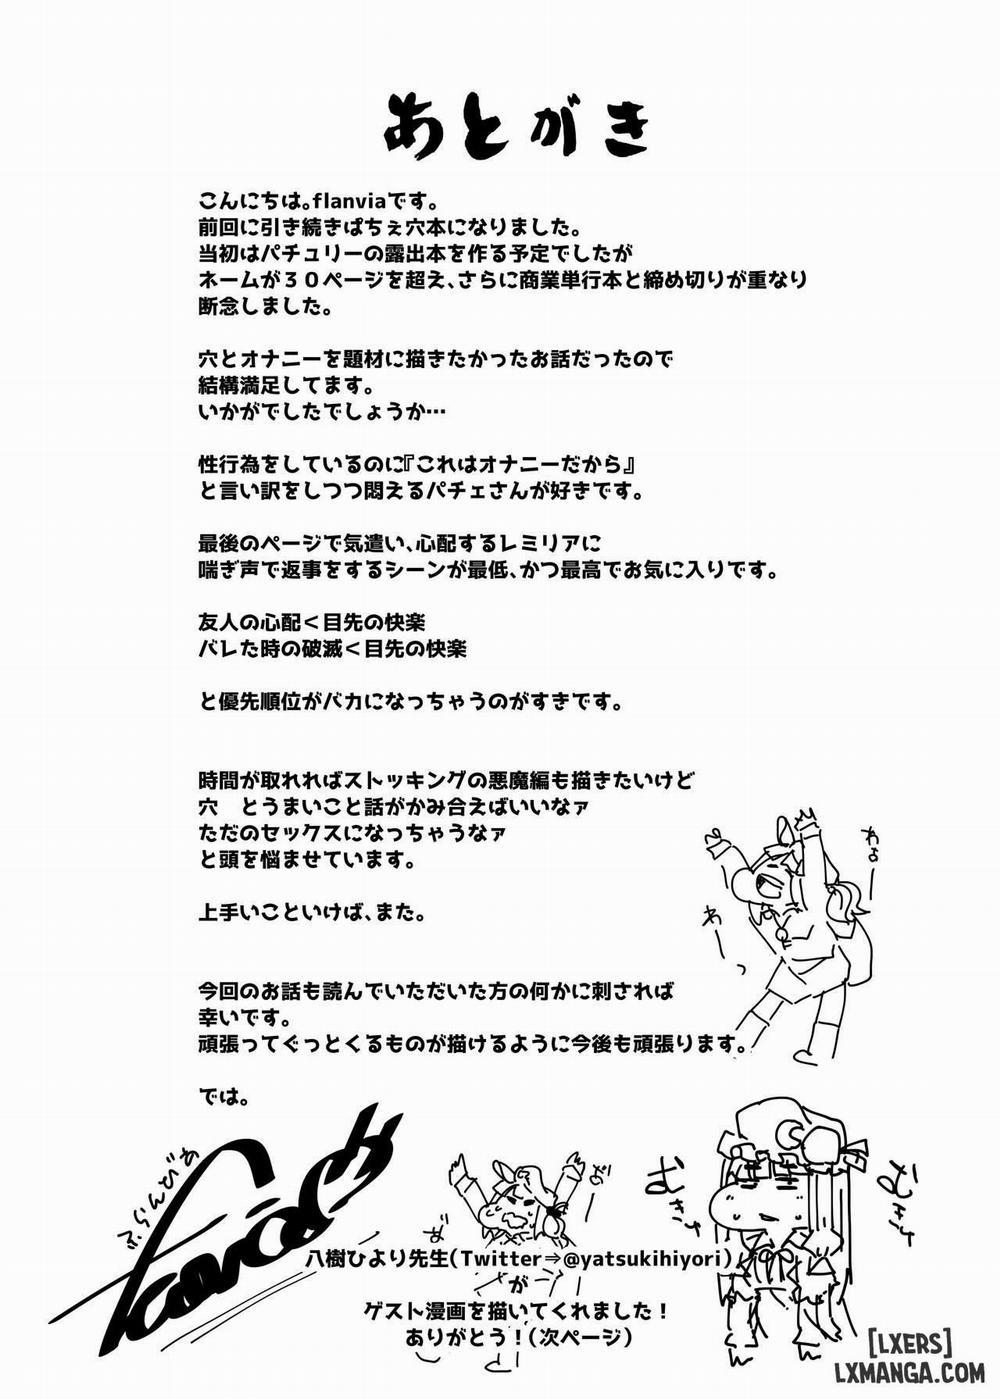 あとがき
こんにちは。flanviaです。
前回に引き続きぱちぇ穴本になりました。
当初はパチュリーの露出本を作る予定でしたが
ネームが３０ページを超え、さらに商業単行本と締め切りが重なり
断念しました。
穴とオナニーを題材に描きたかったお話だったので
結構満足してます。
いかがでしたでしょうか…
性行為をしているのに『これはオナニーだから』
と言い訳をしつつ悶えるパチェさんが好きです。
最後のページで気遣い、心配するレミリアに
喘ぎ声で返事をするシーンが最低、かつ最高でお気に入りです。
友人の心配＜目先の快楽
バレた時の破滅＜目先の快楽
と優先順位がバカになっちゃうのがすきです。
時間が取れればストッキングの悪魔編も描きたいけど
穴　とうまいこと話がかみ合えばいいなァ
ただのセックスになっちゃうなァ
と頭を悩ませています。
上手いこといけば、また。
わぁー
わーっ
今回のお話も読んでいただいた方の何かに刺されば
幸いです。
頑張ってぐっとくるものが描けるように今後も頑張ります。
では。
ふらんびあ
むきゅー
むきゅー
八樹ひより先生(Twitter⇒@yatsukihiyori)
が
ゲスト漫画を描いてくれました！
ありがとう！(次ページ)
[LXERS]
LXMANGA.COM